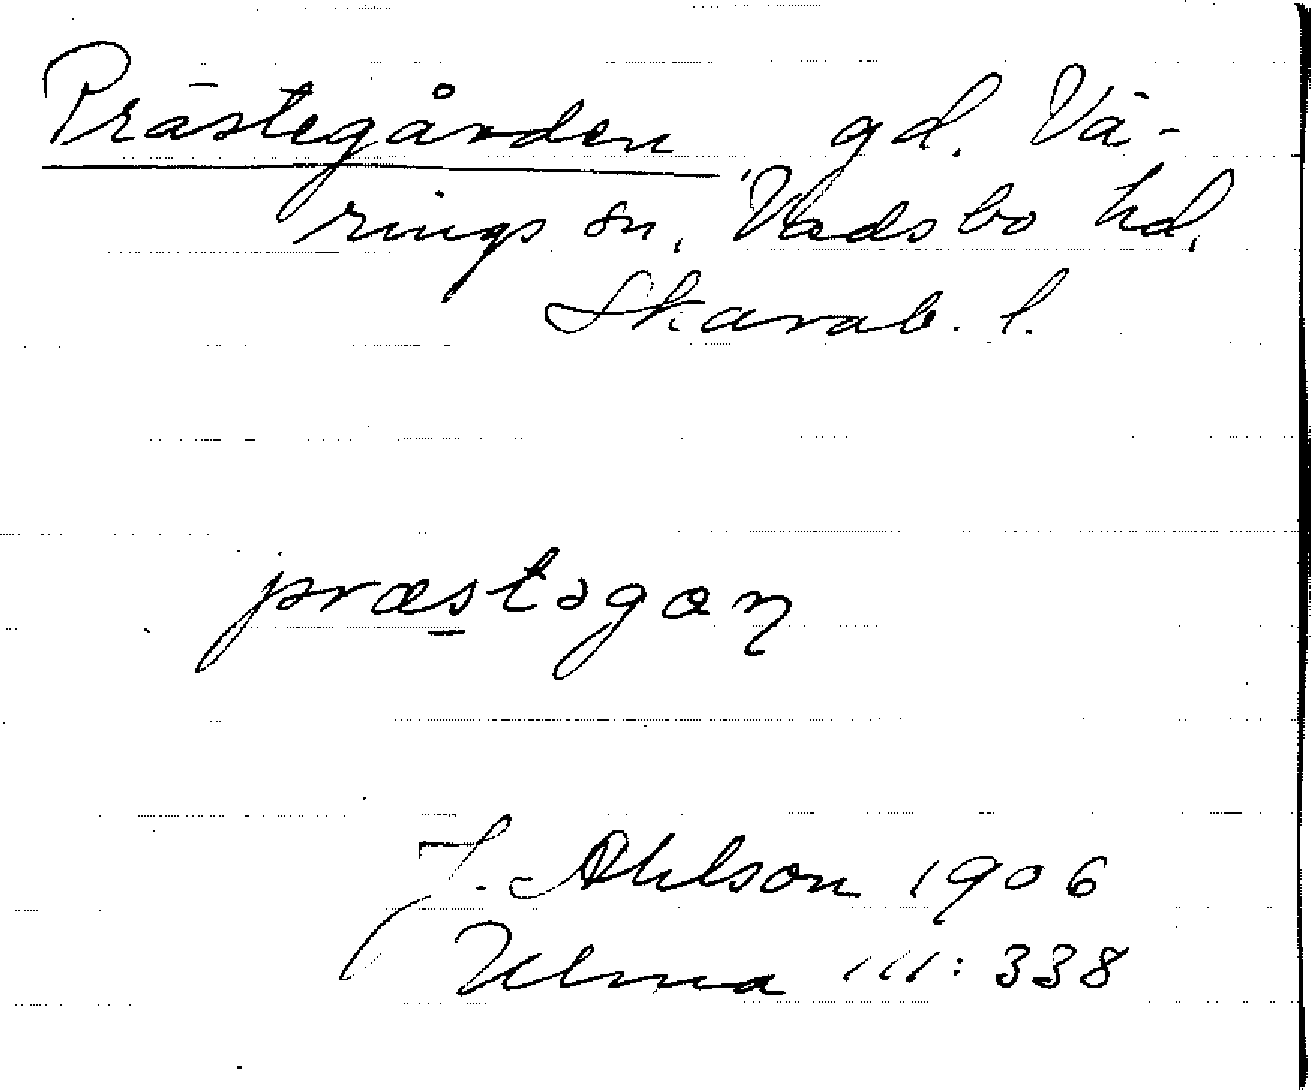 Prästegården gd. Vä-
rings sn, Vadsbo hd,
Skarab. l.
præstəgaɳ
J. Ahlson 1906
Ulma 111: 338